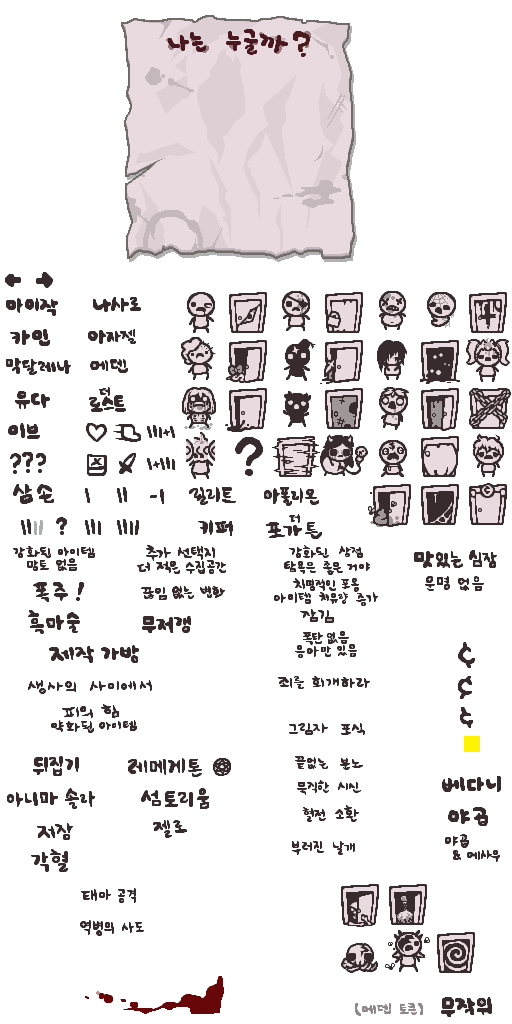 나는 누굴까?
아이작 나사로
카인 아자젤
막달레나 에덴
유다 더 로스트
이브
???
삼손 릴리트 아폴리온
? 키퍼 더 포가튼
강화된 아이템
맘토 없음
추가 선택지
더 적은 수집공간
강화된 상점
탐욕은 좋은 거야
맛있는 심장
운명 없음
폭주!
끊임 없는 변화
치명적인 포옹
아이템 치유량 증가
흑마술 무저갱
잠김
폭탄 없음
응아만 있음
제작 가방
생사의 사이에서
죄를 회개하라
피의 힘
약화된 아이템
그림자 포식
뒤집기 레메게톤
끝없는 분노
아니마 솔라 섬토리움
묵직한 시신
베다니
저장 젤로
혈전 소환
야곱
각혈
부러진 날개
야곱
& 에사우
태마 공격
역병의 사도
(에덴 토큰) 무작위